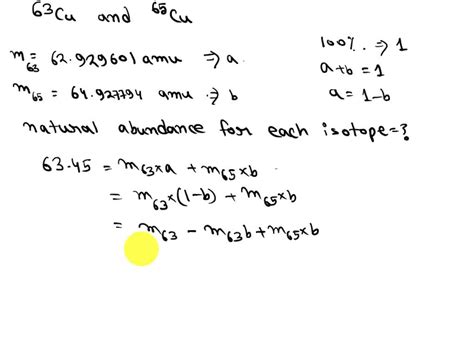 ⁶³Cu and ⁶⁵Cu
m₆₃ = 62.929601 amu ⇒ a
m₆₅ = 64.927794 amu ⇒ b
100% ⇒ 1
a+b = 1
a = 1-b
natural abundance for each isotope=?
63.45 = m₆₃×a + m₆₅×b
= m₆₃×(1-b) + m₆₅×b
= m₆₃ - m₆₃b + m₆₅×b